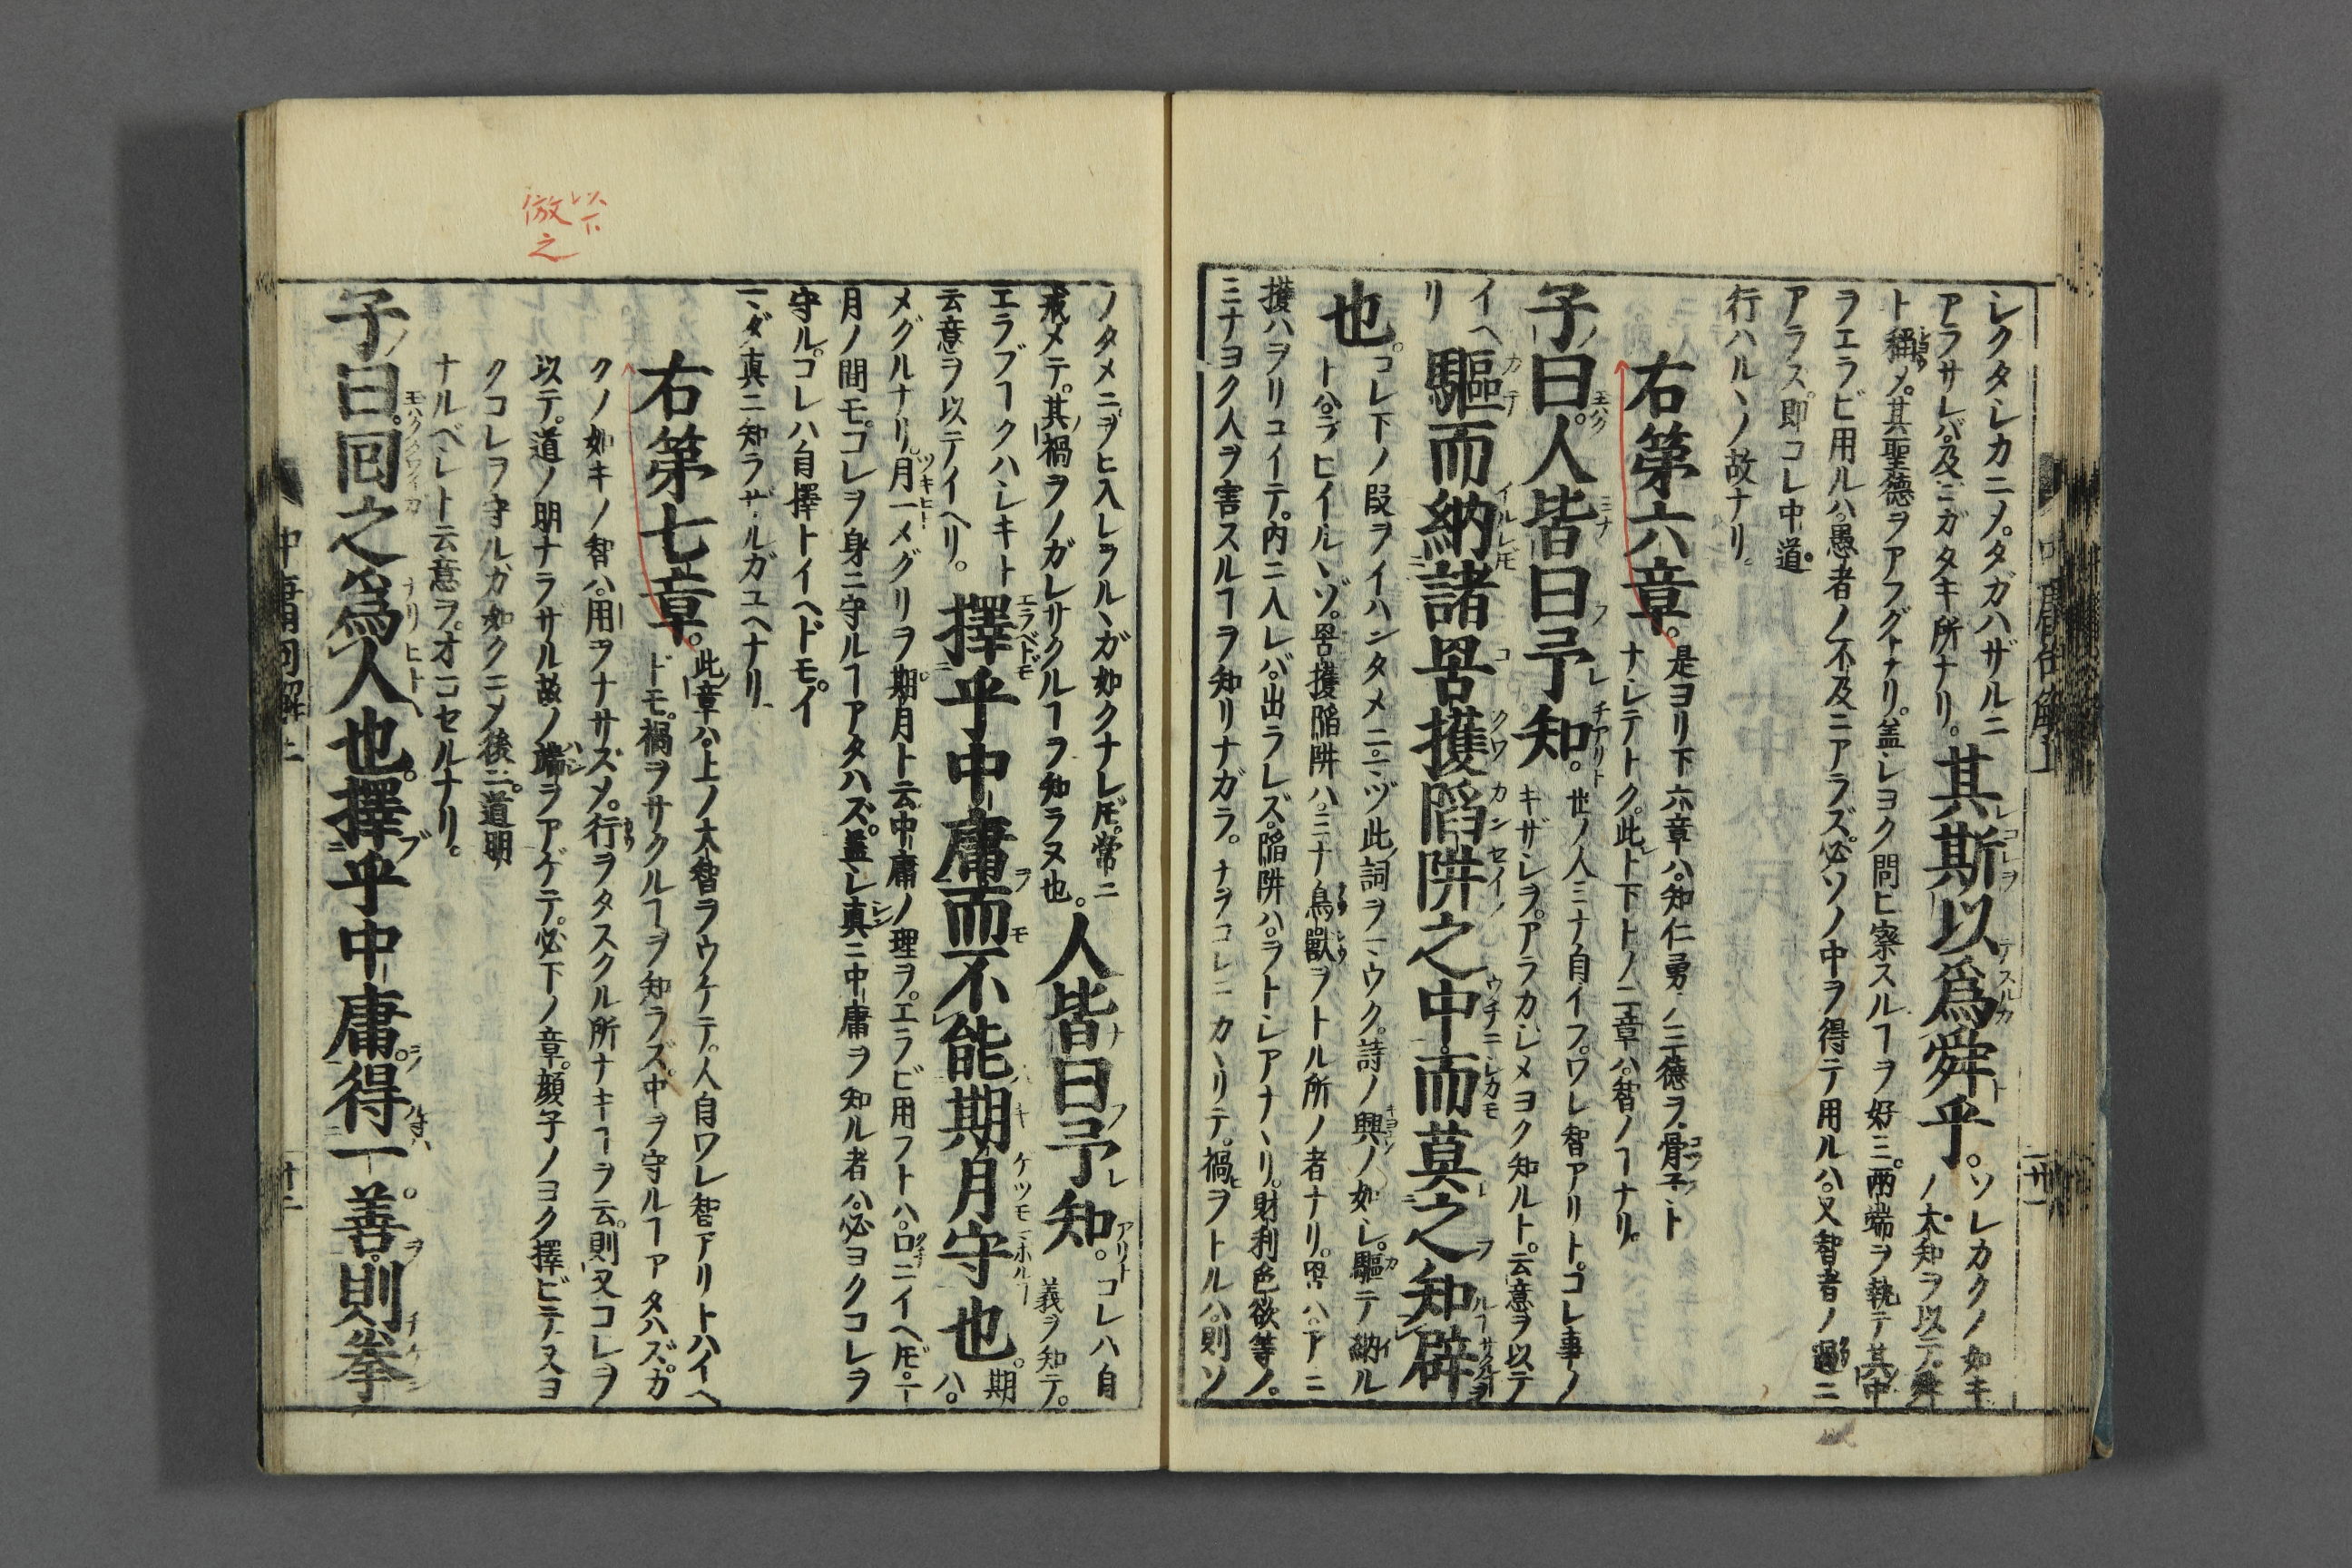 レクタレカニメ。タガハザルニ
アラサレバ。及ビガタキ所ナリ。其斯以爲舜乎。ソレカクノ如キノ大知ヲ以テ。舜
ト稱メ。其聖德ヲアフグナリ。蓋レヨク問ヒ察スルヿヲ好ミ。兩端ヲ執テ其中
ヲエラビ用ルハ。愚者ノ不及ニアラズ。必ソノ中ヲ得テ用ルハ。又智者ノ過ニ
アラス。即コレ中道。
行ハルヽノ故ナリ。
右第六章。是ヨリ下六章ハ。知仁勇ノ三德ヲ。骨子トナレテトク。此ト下トノ二章ハ。智ノヿナリ。
子曰。人皆曰予知。世ノ人ミナ自イフ。ワレ智アリト。コレ事ノキザシヲ。アラカシメヨク知ルト。云意ヲ以テ
イヘリ
驅而納諸罟擭陷阱之中。而莫之知辟
也。コレ下ノ段ヲイハンタメニ。マヅ此詞ヲマウク。詩ノ興ノ如シ。驅テ納ル
トハ。ヲヒイルヽゾ。罟擭陷阱ハ。ミナ鳥獸ヲトル所ノ者ナリ。罟ハ。アミ
擭ハヲリコイテ。內ニ入レバ。出ラレズ。陷阱ハ。ヲトシアナヽリ。財利色欲等ノ。
ミナヨク人ヲ害スルヿヲ知リナガラ。ナヲコレニカヽリテ。禍ヲトルハ。則ソ
ノタメニヲヒ入レラルヽガ如クナレ𪜈。常ニ
戒メテ。其禍ヲノガレサクルヿヲ知ラヌ也。人皆曰予知。コレハ自義ヲ知テ。
エラブヿクハレキト
云意ヲ以テイヘリ。擇乎中庸而不能期月守也。期ハ。
メグルナリ。月一メグリヲ。期月ト云中庸ノ理ヲ。エラビ用フトハ。口ニイヘ𪜈。一
月ノ間モ。コレヲ身ニ守ルヿアタハズ。蓋レ真ニ中庸ヲ知ル者ハ。必ヨクコレヲ
守ル。コレハ自擇トイヘドモ。イ
マダ真ニ知ラザルガユヘナリ
右第七章。此章ハ。上ノ大智ヲウケテ。人自ワレ智アリトハイヘドモ。禍ヲサクルヿヲ知ラズ。中ヲ守ルヿアタハズ。カ
クノ如キノ智ハ。用ヲナサズメ。行ヲタスクル所ナキヿヲ云。則又コレヲ
以テ。道ノ明ナラサル故ノ端ヲアゲテ。必下ノ章。顔子ノヨク擇ビテ。又ヨ
クコレヲ守ルガ如クニメ後ニ。道明
ナルベレト云意ヲ。オコセルナリ。
子曰。回之爲人也。擇乎中庸。得一善。則拳
以下
倣之